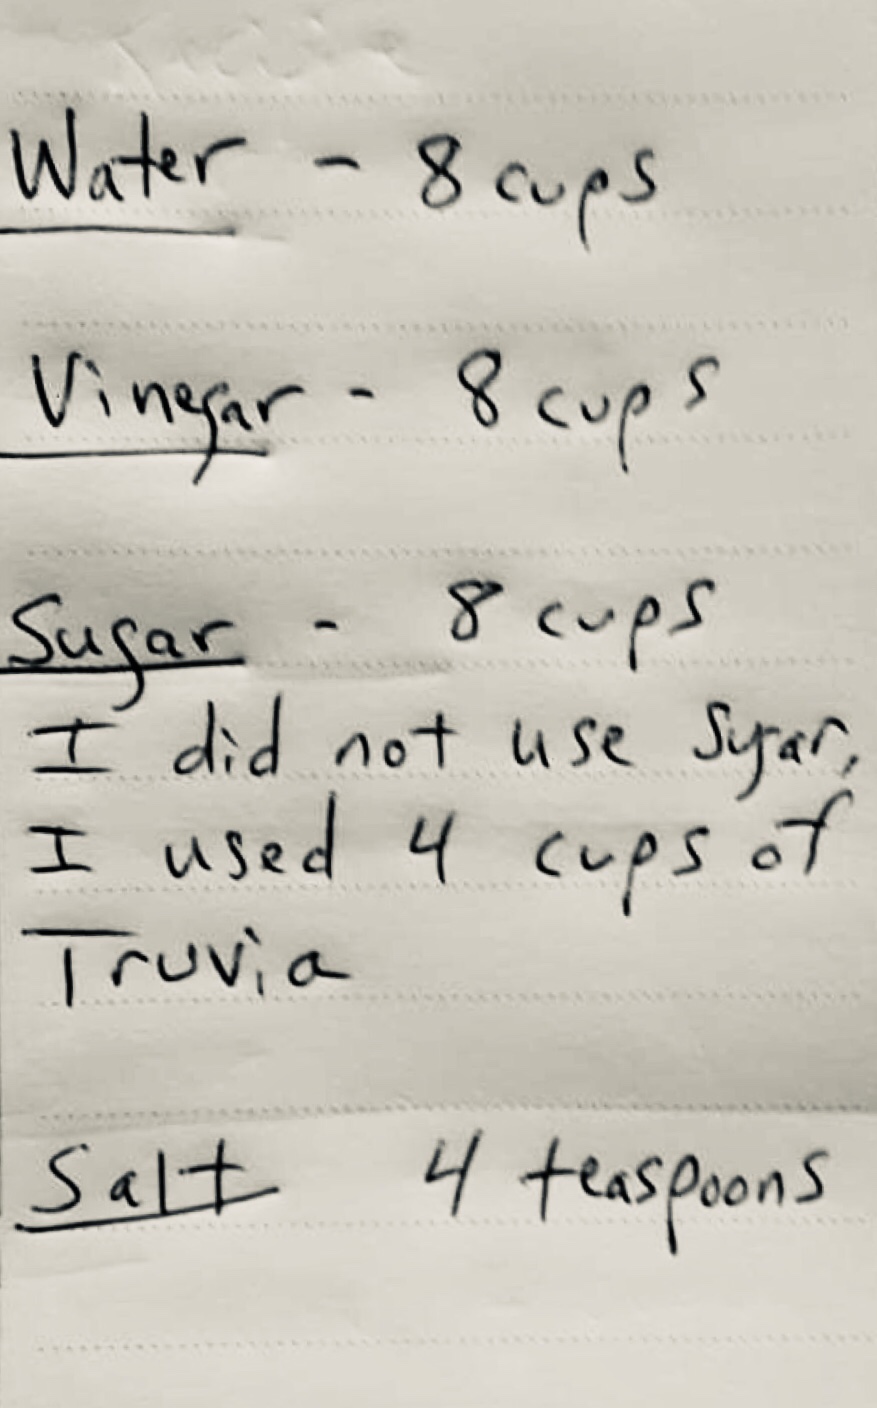 Water - 8 cups
Vinegar - 8 cups
Sugar - 8 cups
I did not use Sugar,
I used 4 cups of
Truvia
Salt 4 teaspoons